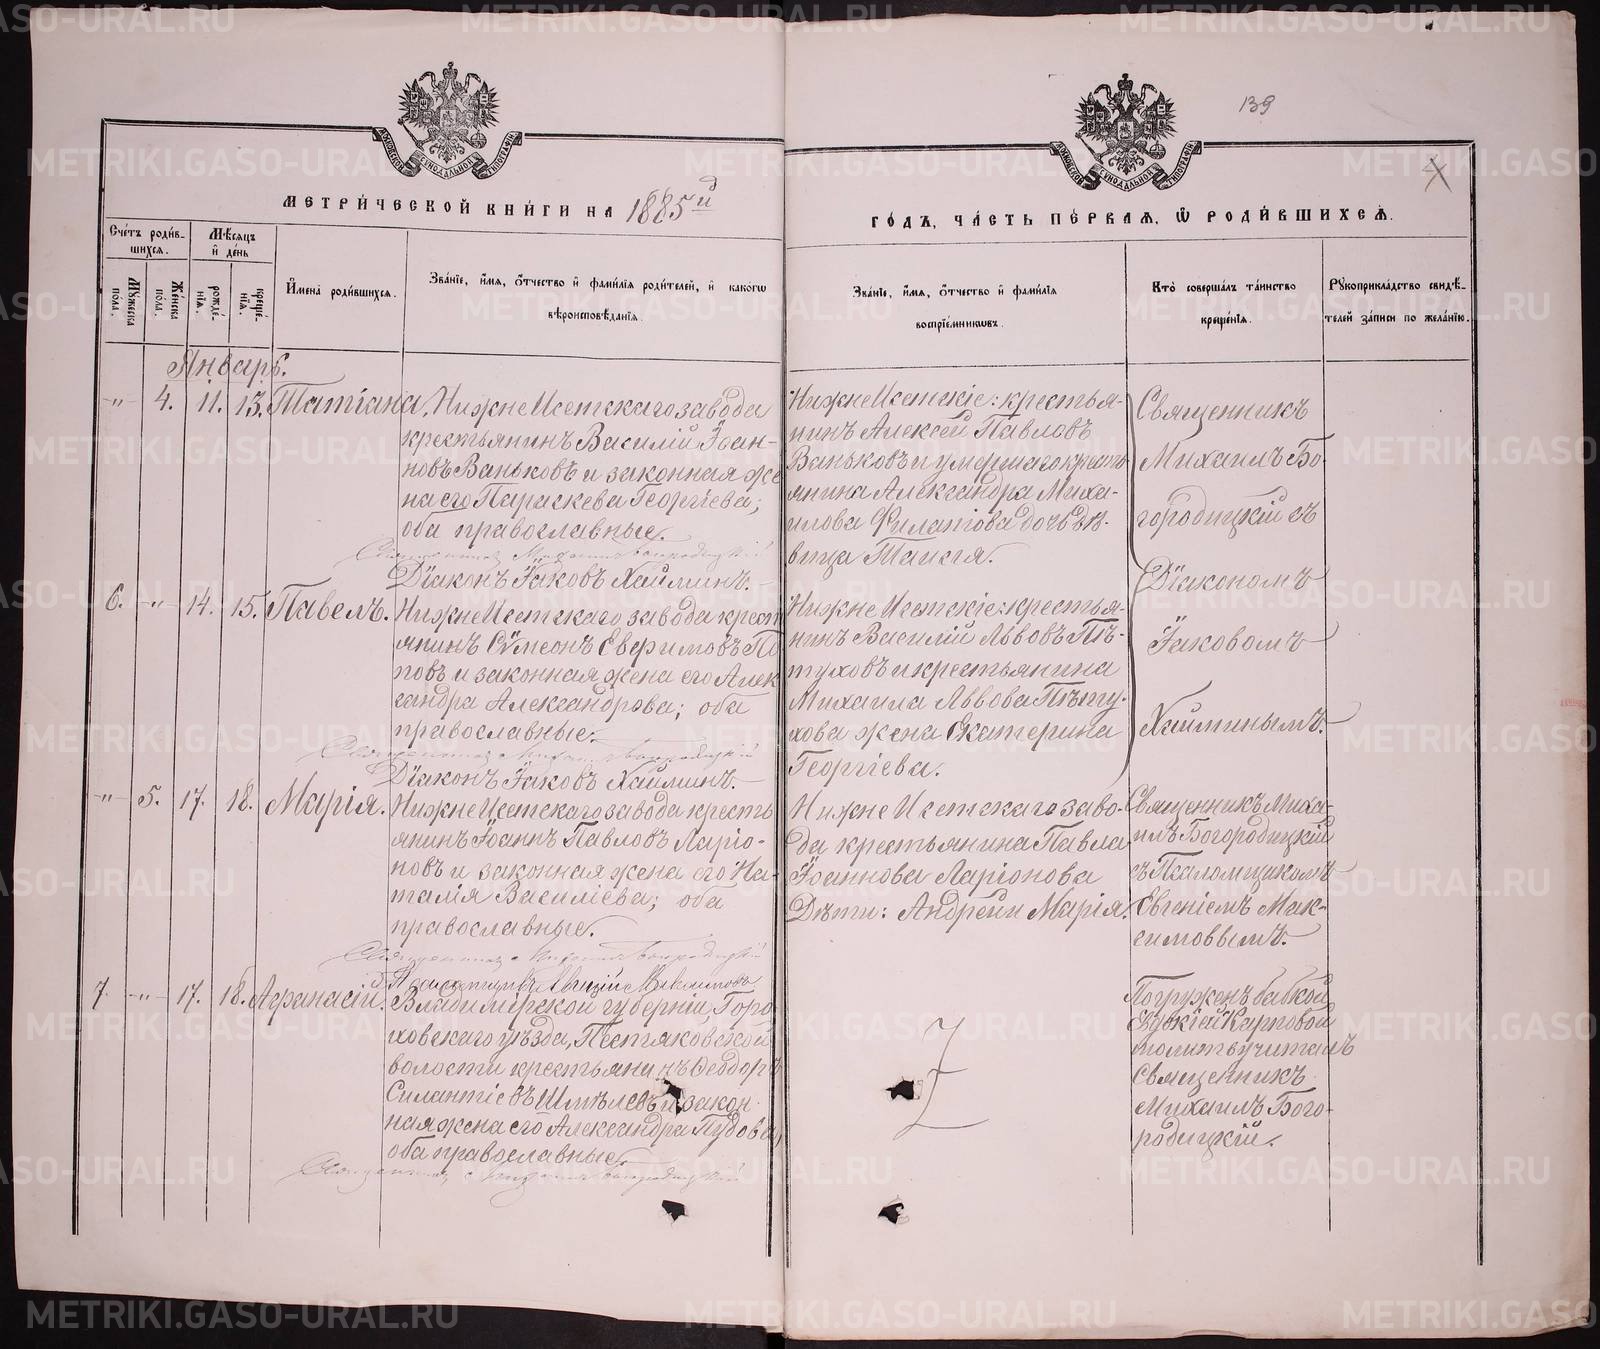 139
4
МОСКОВСКОЙ СѴНОДАЛЬНОЙ ТИПОГРАФІИ
МОСКОВСКОЙ СѴНОДАЛЬНОЙ ТИПОГРАФІИ
МЕТРИ́ЧЕСКОЙ КНИ́ГИ НА 1885й
ГО́ДЪ, ЧА́СТЬ ПЕ́РВАЯ, Ѡ РОДИ́ВШИХСЯ.
Сче́тъ роди́в-
шихся.
Мѣ́сяцъ
и де́нь
Му́жеска по́ла.
Же́нска по́ла.
рожде́-
нія.
креще́-
нія.
Имена̀ роди́вшихся.
Зва́ніе, и́мя, о́тчество и фами́лія роди́телей, и како́гѡ
вѣроисповѣ́данія.
Зва́ніе, и́мя, о́тчество и фами́лія
воспріе́мникѡвъ.
Кто̀ соверша́лъ та́инство
креще́нія.
Рꙋкоприкла́дство свидѣ́-
телей за́писи по жела́нію.
Январь.
-„- 4. 11. 13. Татіана.
НижнеИсетскаго завода
крестьянинъ Василій Іоан-
новъ Ваньковъ и законная же
на его Параскева Георгіева;
оба православные.
Священникъ Михаилъ Богородицкій
Діаконъ Іаковъ Хайминъ.
НижнеИсетскіе: крестья-
нинъ Алексей Павловъ
Ваньковъ и умершаго кресть-
янина Александра Миха-
илова Филатова дочь дѣ-
вица Таисія.
Священникъ
Михаилъ Бо-
городицкій съ
Діакономъ
Іаковомъ
Хайминымъ.
6. -„- 14. 15. Павелъ.
НижнеИсетскаго завода крест
янинъ Сѵмеонъ Евфимовъ По
повъ и законная жена его Алек
сандра Александрова; оба
православные.
Священникъ Михаилъ Богородицкій
Діаконъ Іаковъ Хайминъ.
НижнеИсетскіе: крестья-
нинъ Василій Львовъ Пѣ-
туховъ и крестьянина
Михаила Львова Пѣту-
хова жена Екатерина
Георгіева.
-„- 5. 17. 18. Марія.
НижнеИсетскаго завода кресть
янинъ Іоаннъ Павловъ Ларіо-
новъ и законная жена его На-
талія Василіева; оба
православные.
Священникъ Михаилъ Богородицкій
Псаломщикъ Евгеній Максимовъ
НижнеИсетскаго заво-
да крестьянина Павла
Іоаннова Ларіонова
Дѣти: Андрей и Марія.
Священникъ Миха-
илъ Богородицкій
съ Псаломщикомъ
Евгеніемъ Мак-
симовымъ.
7. -„- 17. 18. Афанасій.
Владимірской губерніи, Горо
ховскаго уѣзда, Пестяковской
волости крестьянинъ Ѳеодоръ
Силантіевъ Шмѣлевъ и закон-
ная жена его Александра Пудова,
оба православные.
Священникъ Михаилъ Богородицкій
Погруженъ бабкой
Карповой
молитву читалъ
Священникъ
Михаилъ Бого-
родицкій.
METRIKI.GASO-URAL.RU